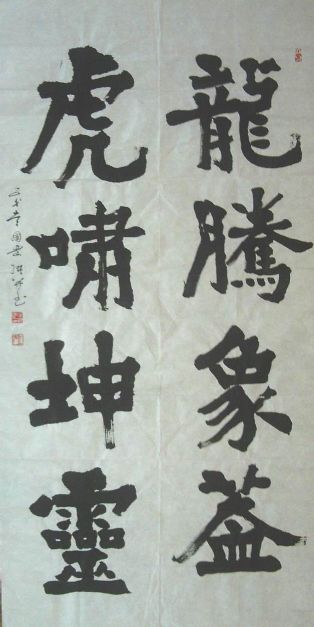 龍騰象蓋
虎嘯坤靈